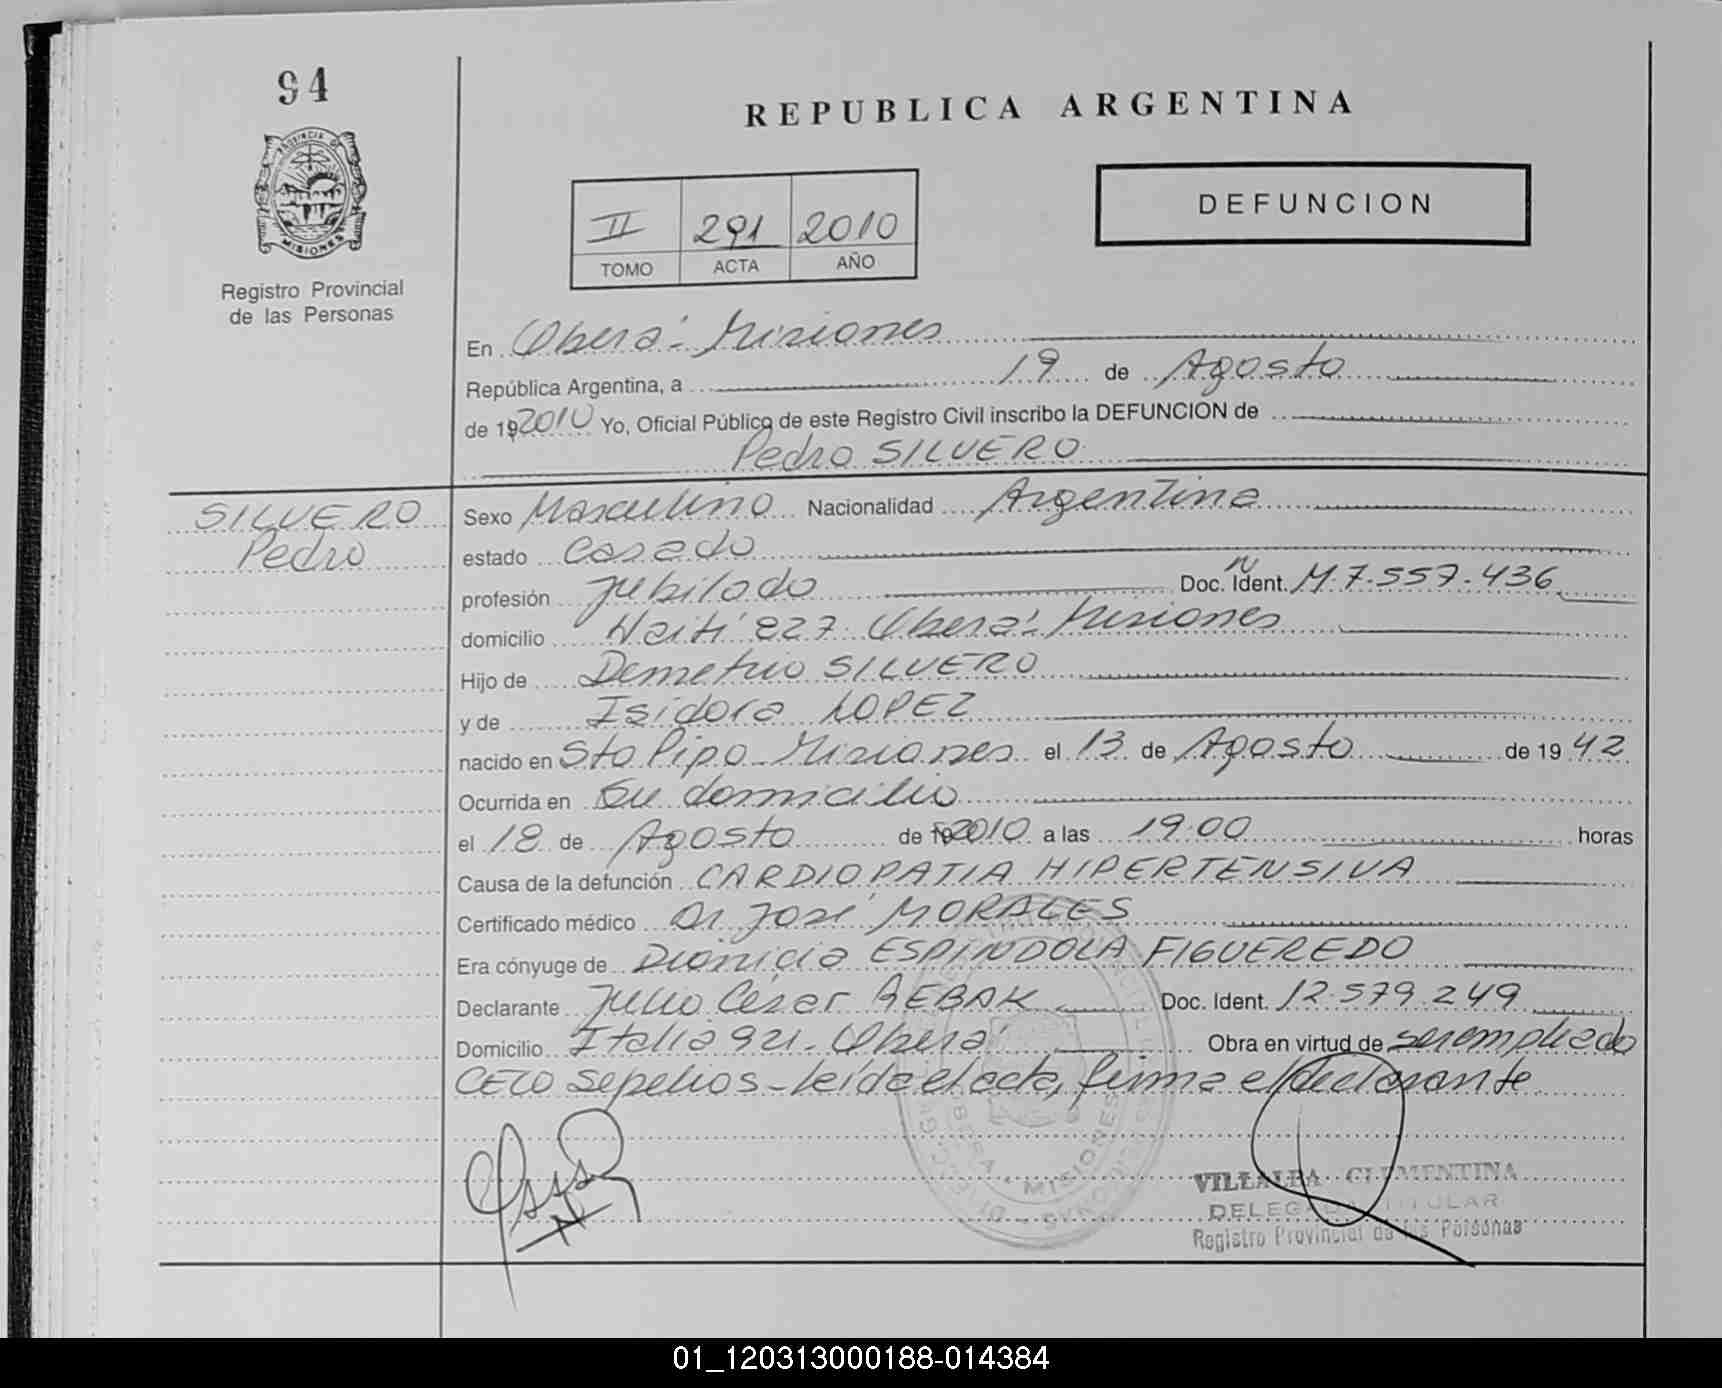 94
REPUBLICA ARGENTINA
PROVINCIA DE
MISIONES
Registro Provincial
de las Personas
II 291 2010
TOMO ACTA AÑO
DEFUNCION
En Oberá - Misiones
República Argentina, a 19 de Agosto
de 192010 Yo, Oficial Público de este Registro Civil inscribo la DEFUNCION de
Pedro SILVERO
SILVERO
Pedro
Sexo Masculino Nacionalidad Argentina
estado Casado
profesión Jubilado Doc. Ident. M.7.557.436
domicilio Haití 827 Oberá - Misiones
Hijo de Demetrio SILVERO
y de Isidora LOPEZ
nacido en Sto Pipo - Misiones el 13 de Agosto de 1942
Ocurrida en Su domicilio
el 18 de Agosto de 192010 a las 19:00 horas
Causa de la defunción CARDIOPATIA HIPERTENSIVA
Certificado médico Dr José MORALES
Era cónyuge de Dionicia ESPINDOLA FIGUEREDO
Declarante Julio César REBAK Doc. Ident. 12.579.249
Domicilio Italia 921 - Oberá Obra en virtud de ser empleado
CELO Sepelios - Leída el acta, firma el declarante
OBERA - MISIONES
VILLALBA CLEMENTINA
DELEGADA TITULAR
Registro Provincial de las Personas
01_120313000188-014384